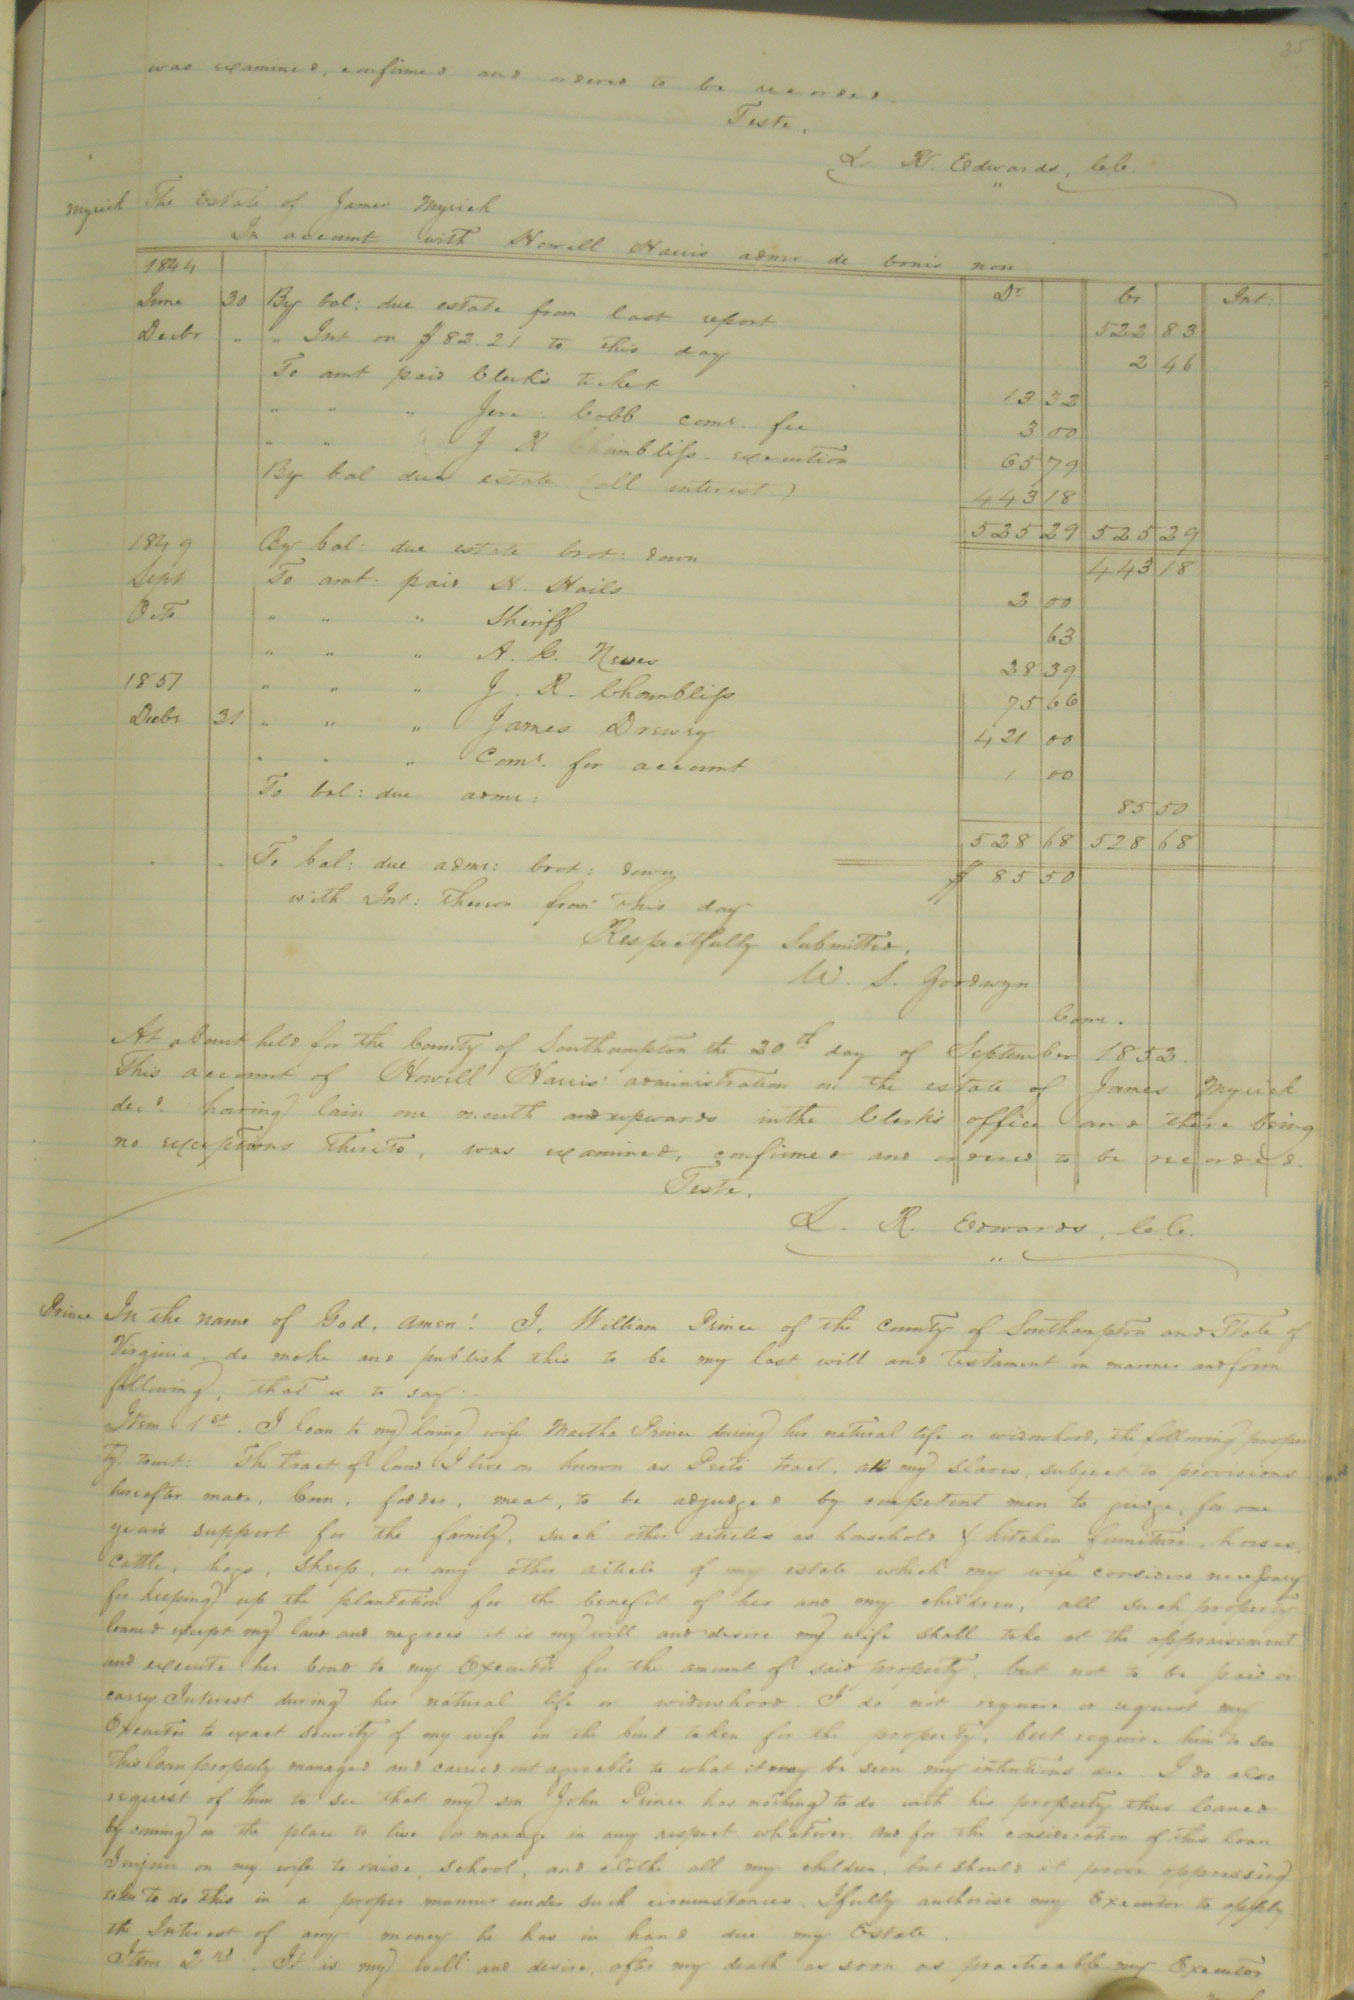 35
was examined, confirmed and ordered to be recorded.
Teste,
L. R. Edwards, C.C.
Myrick The Estate of James Myrick
In account with Howell Harris admr. de bonis non
1844 Dr Cr Int:
June 30 By bal: due estate from last report 522 83
Decbr " " Int on $82.21 to this day 2 46
To amt paid Clerk's ticket 13 32
" " " Jere. Cobb comr. fee 3 00
" " J R Chambliss - execution 65 79
By bal due estate (all interest) 443 18
525 29 525 29
1849 By bal: due estate brot: down 443 18
Sept To amt: paid H. Hails 2 00
Octo " " " Sheriff 63
" " " A. C. Neves 28 39
1851 " " " J. R. Chambliss 75 66
Decbr 31 " " " James Drewry 421 00
" " " Comr. for account 1 00
To bal: due admr: 85 50
528 68 528 68
To bal: due admr: brot: down $ 85 50
with Int: thereon from this day
Respectfully Submitted,
W. S. Goodwyn
Comr.
At a Court held for the County of Southampton the 20th day of September 1852.
This account of Howell Harris' administration on the estate of James Myrick
decd. having lain one month and upwards in the Clerk's office and there being
no exceptions thereto, was examined, confirmed and ordered to be recorded.
Teste,
L. R. Edwards, C.C.
Prince In the name of God, Amen! I, William Prince of the County of Southampton and State of
Virginia do make and publish this to be my last will and Testament in manner and form
following, that is to say:-
Item 1st. I loan to my loving wife Martha Prince during her natural life or widowhood, the following proper
ty towit: The tract of land I live on known as Peets tract, all my slaves, subject to provisions
hereafter made, Corn, fodder, meat, to be adjudged by competent men to judge, for one
years support for the family, such other articles as household & kitchen furniture, horses,
cattle, hogs, sheep, or any other article of my estate which my wife considers necessary
for keeping up the plantation for the benefit of her and my children, all such property
loaned except my land and negroes it is my will and desire my wife shall take at the appraisement
and execute her bond to my Executor for the amount of said property, but not to be paid or
carry Interest during her natural life or widowhood. I do not require or request my
Executor to exact security of my wife in the bond taken for the property, but require him to see
this loan property managed and carried out agreeable to what it may be seen my intentions are. I do also
request of him to see that my son John Prince has nothing to do with his property thus loaned
by coming on the place to live or manage in any respect whatever and for the consideration of this loan
I enjoin on my wife to raise, school, and clothe all my children, but should it prove oppressing
to her to do this in a proper manner under such circumstances, I fully authorise my Executor to apply
the Interest of any money he has in hand due my Estate.
Item 2nd. It is my will and desire, after my death as soon as practicable my Executor